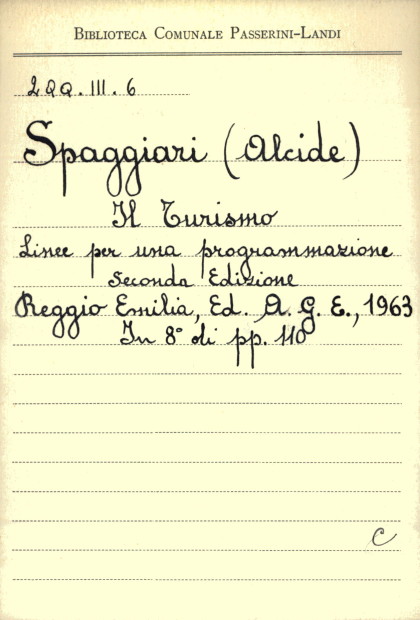 Biblioteca Comunale Passerini-Landi
2QQ.III.6
Spaggiari (Alcide)
Il Turismo
Linee per una programmazione
Seconda Edizione
Reggio Emilia, Ed. A. G. E., 1963
In 8° di pp. 110
C